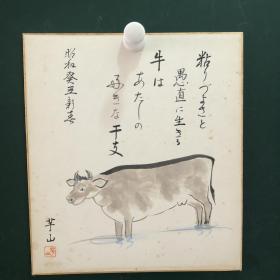 粘りづよさと
愚直に生きる
牛は
あたしの
好きな干支
昭和癸丑新春
芋山